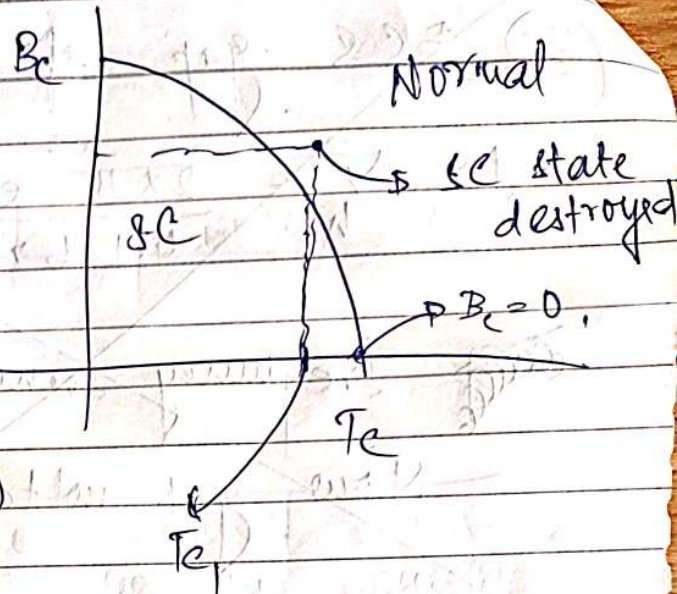 Bc
Normal
SC state
destroyed
SC
Bc = 0.
Tc
Tc1